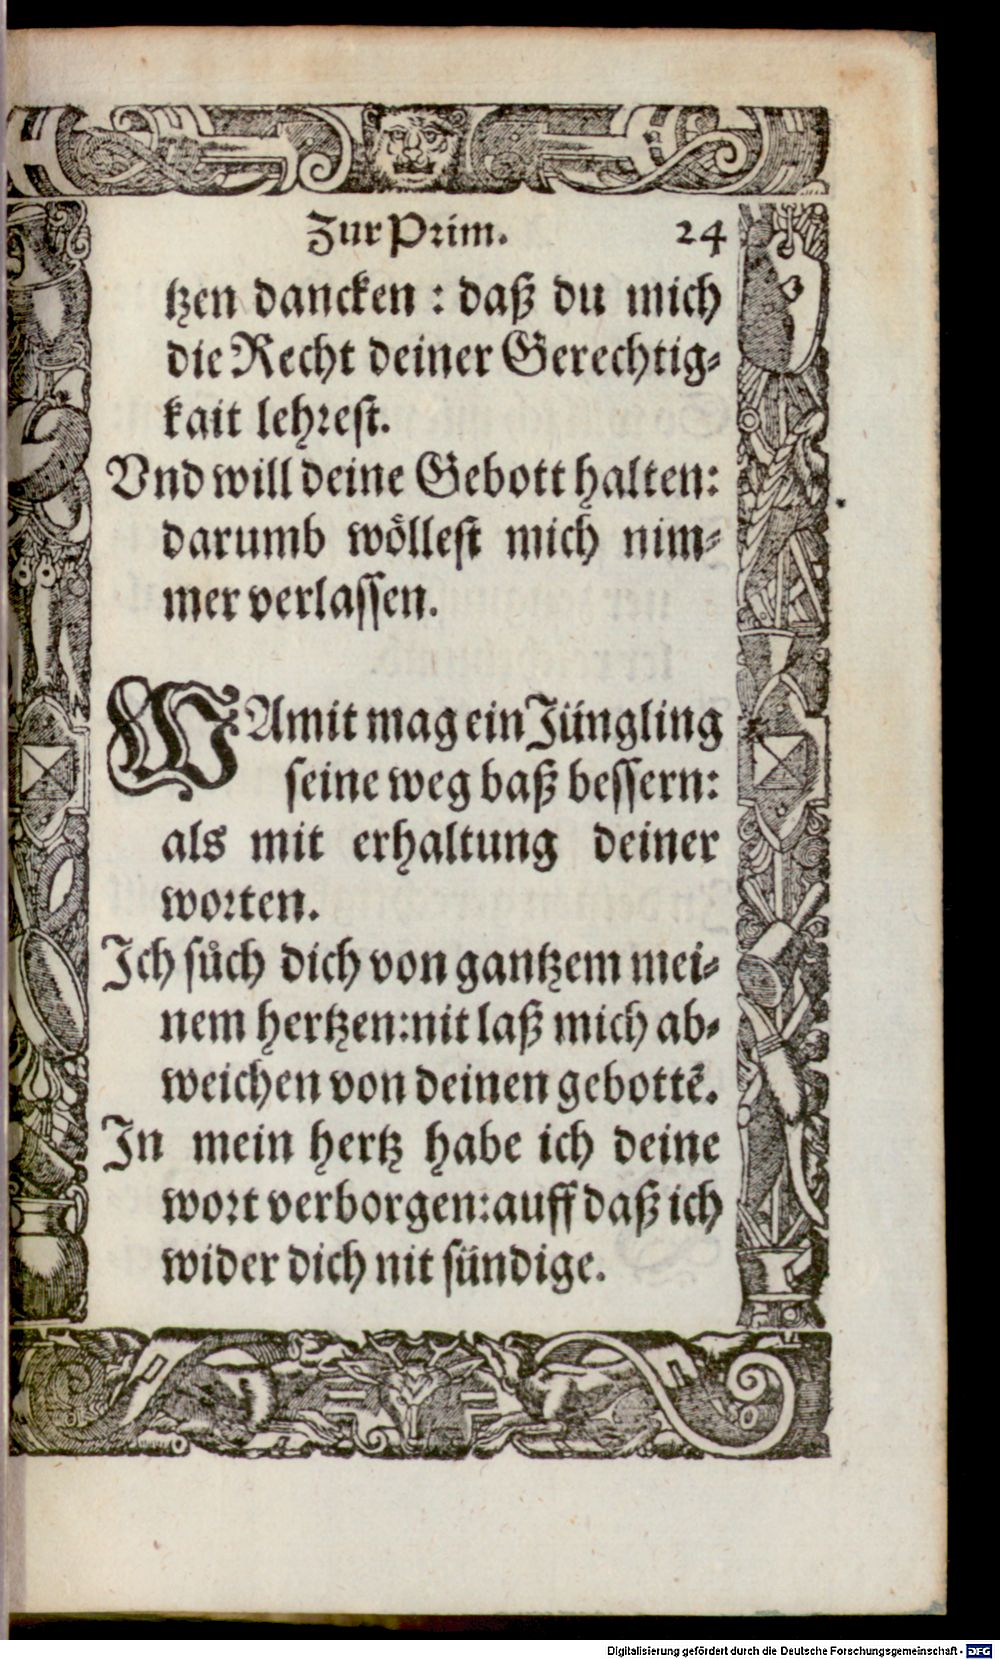 Zur Prim. 24
tzen dancken : daß du mich
die Recht deiner Gerechtig⸗
kait lehrest.
Vnd will deine Gebott halten:
darumb wöllest mich nim⸗
mer verlassen.
WAmit mag ein Jüngling
seine weg baß bessern:
als mit erhaltung deiner
worten.
Ich sůch dich von gantzem mei⸗
nem hertzen: nit laß mich ab⸗
weichen von deinen gebottẽ.
In mein hertz habe ich deine
wort verborgen: auff daß ich
wider dich nit sündige.
Digitalisierung gefördert durch die Deutsche Forschungsgemeinschaft - DFG